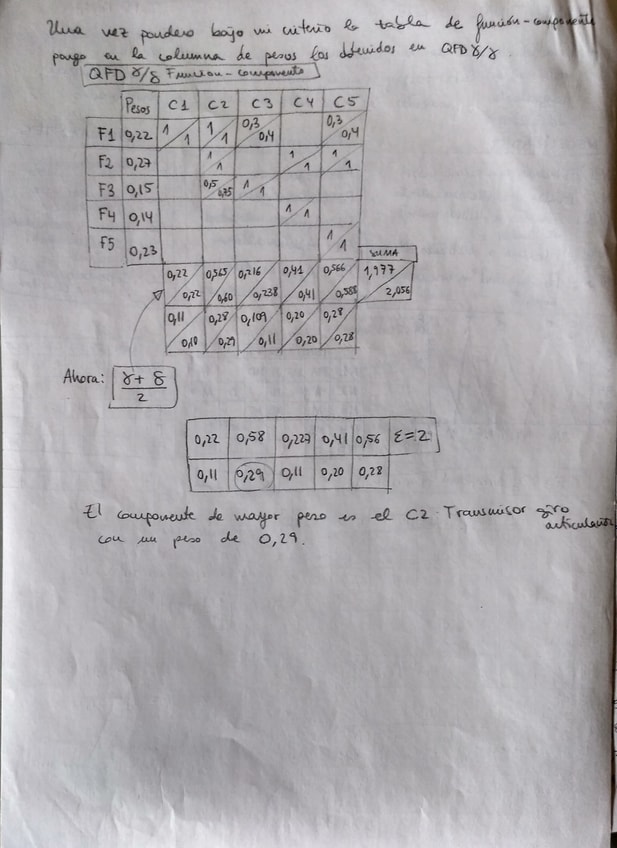 Una vez pondero bajo mi criterio la tabla de función-componente
pongo en la columna de pesos los obtenidos en QFD γ/δ.
QFD γ/δ Función-componente
Pesos C1 C2 C3 C4 C5
F1 0,22 1/1 1/1 0,3/0,4 0,3/0,4
F2 0,27 1/1 1/1 1/1
F3 0,15 0,5/0,75 1/1
F4 0,14 1/1
F5 0,23 1/1
SUMA
0,22/0,22 0,565/0,60 0,216/0,238 0,41/0,41 0,566/0,588 1,977/2,056
0,11/0,10 0,28/0,29 0,109/0,11 0,20/0,20 0,28/0,28
Ahora: γ+δ/2
0,22 0,58 0,227 0,41 0,56 Σ=2
0,11 0,29 0,11 0,20 0,28
El componente de mayor peso es el C2. Transmisor giro articulación
con un peso de 0,29.